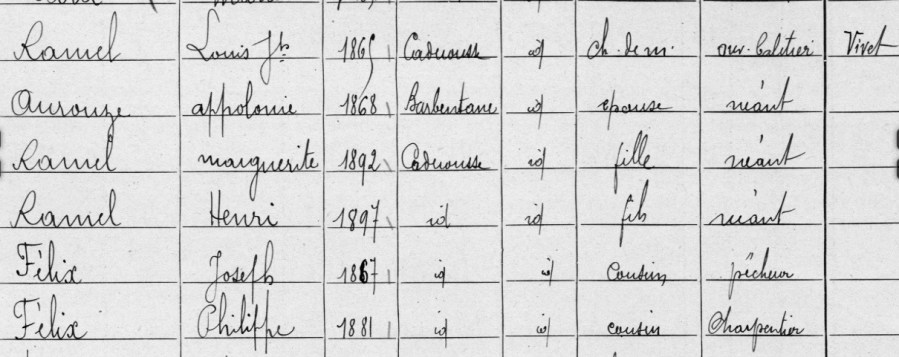 Ramel Louis Jh 1865 Caderousse id ch. de m. ouv. Vivet
Aurouze appolonie 1868 Barbentane id epouse néant
Ramel marguerite 1892 Caderousse id fille néant
Ramel Henri 1897 id id fils néant
Félix Joseph 1867 id id cousin pêcheur
Félix Philippe 1881 id id cousin Charpentier